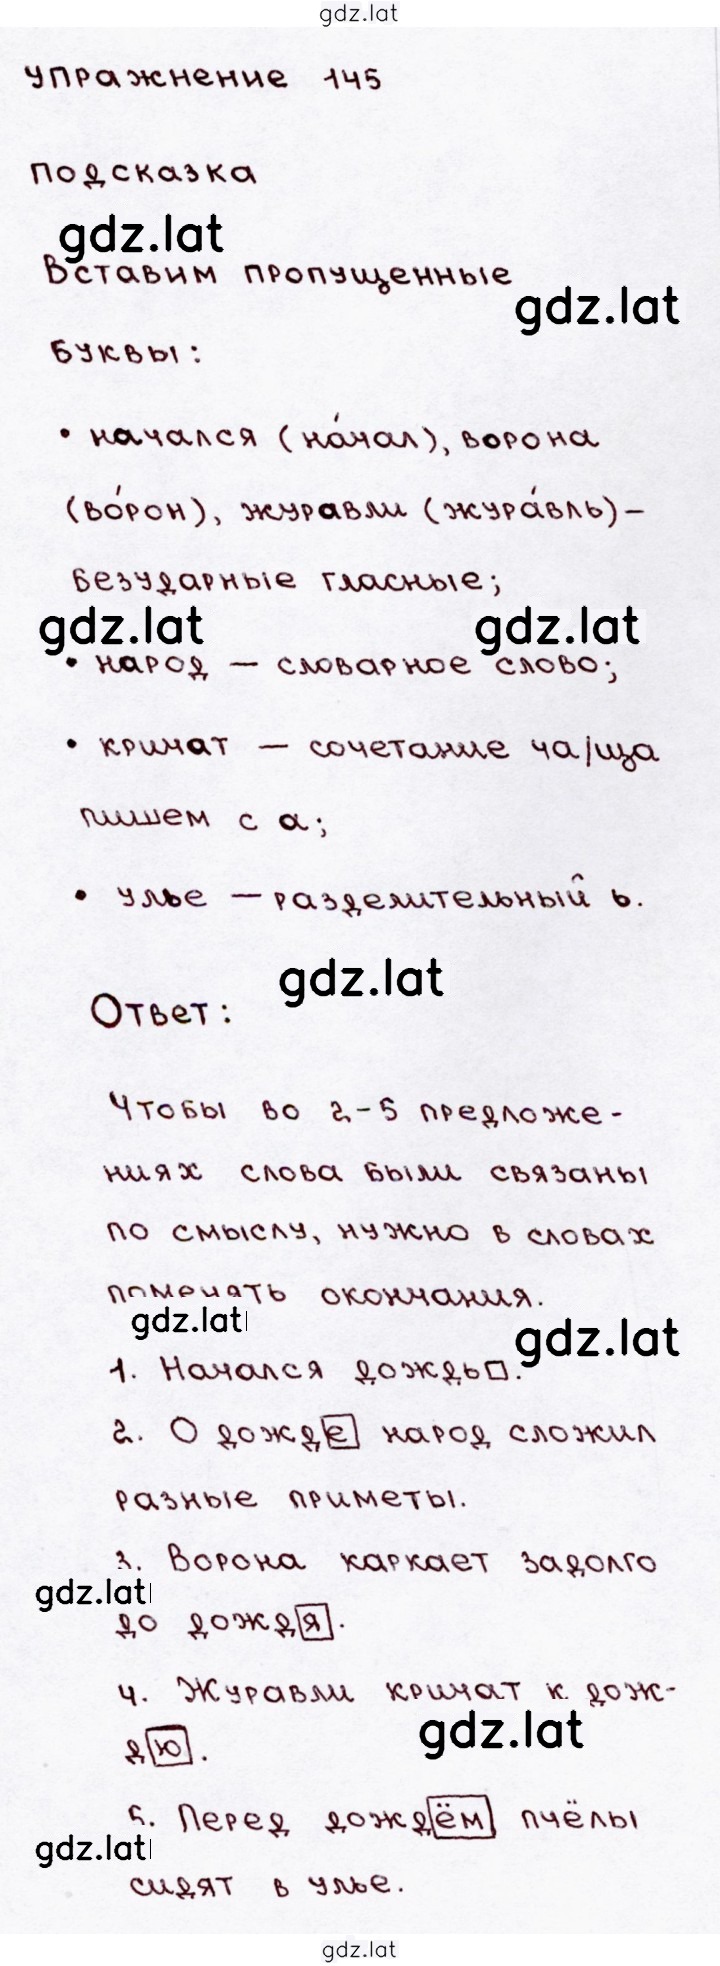 gdz.lat
упражнение 145
подсказка
gdz.lat
Вставим пропущенные
gdz.lat
буквы:
• начался (на́чал), ворона
(во́рон), журавли (жура́вль)-
безударные гласные;
gdz.lat gdz.lat
• народ — словарное слово;
• кричат — сочетание ча/ща
пишем с а;
• улье — разделительный ь.
gdz.lat
Ответ:
Чтобы во 2-5 предложе-
ниях слова были связаны
по смыслу, нужно в словах
поменять окончания.
gdz.lat gdz.lat
1. Начался дождь□.
2. О дожде народ сложил
разные приметы.
3. Ворона каркает задолго
gdz.lat
до дождя.
4. Журавли кричат к дож-
gdz.lat
дю.
5. Перед дождём пчёлы
gdz.lat
сидят в улье.
gdz.lat